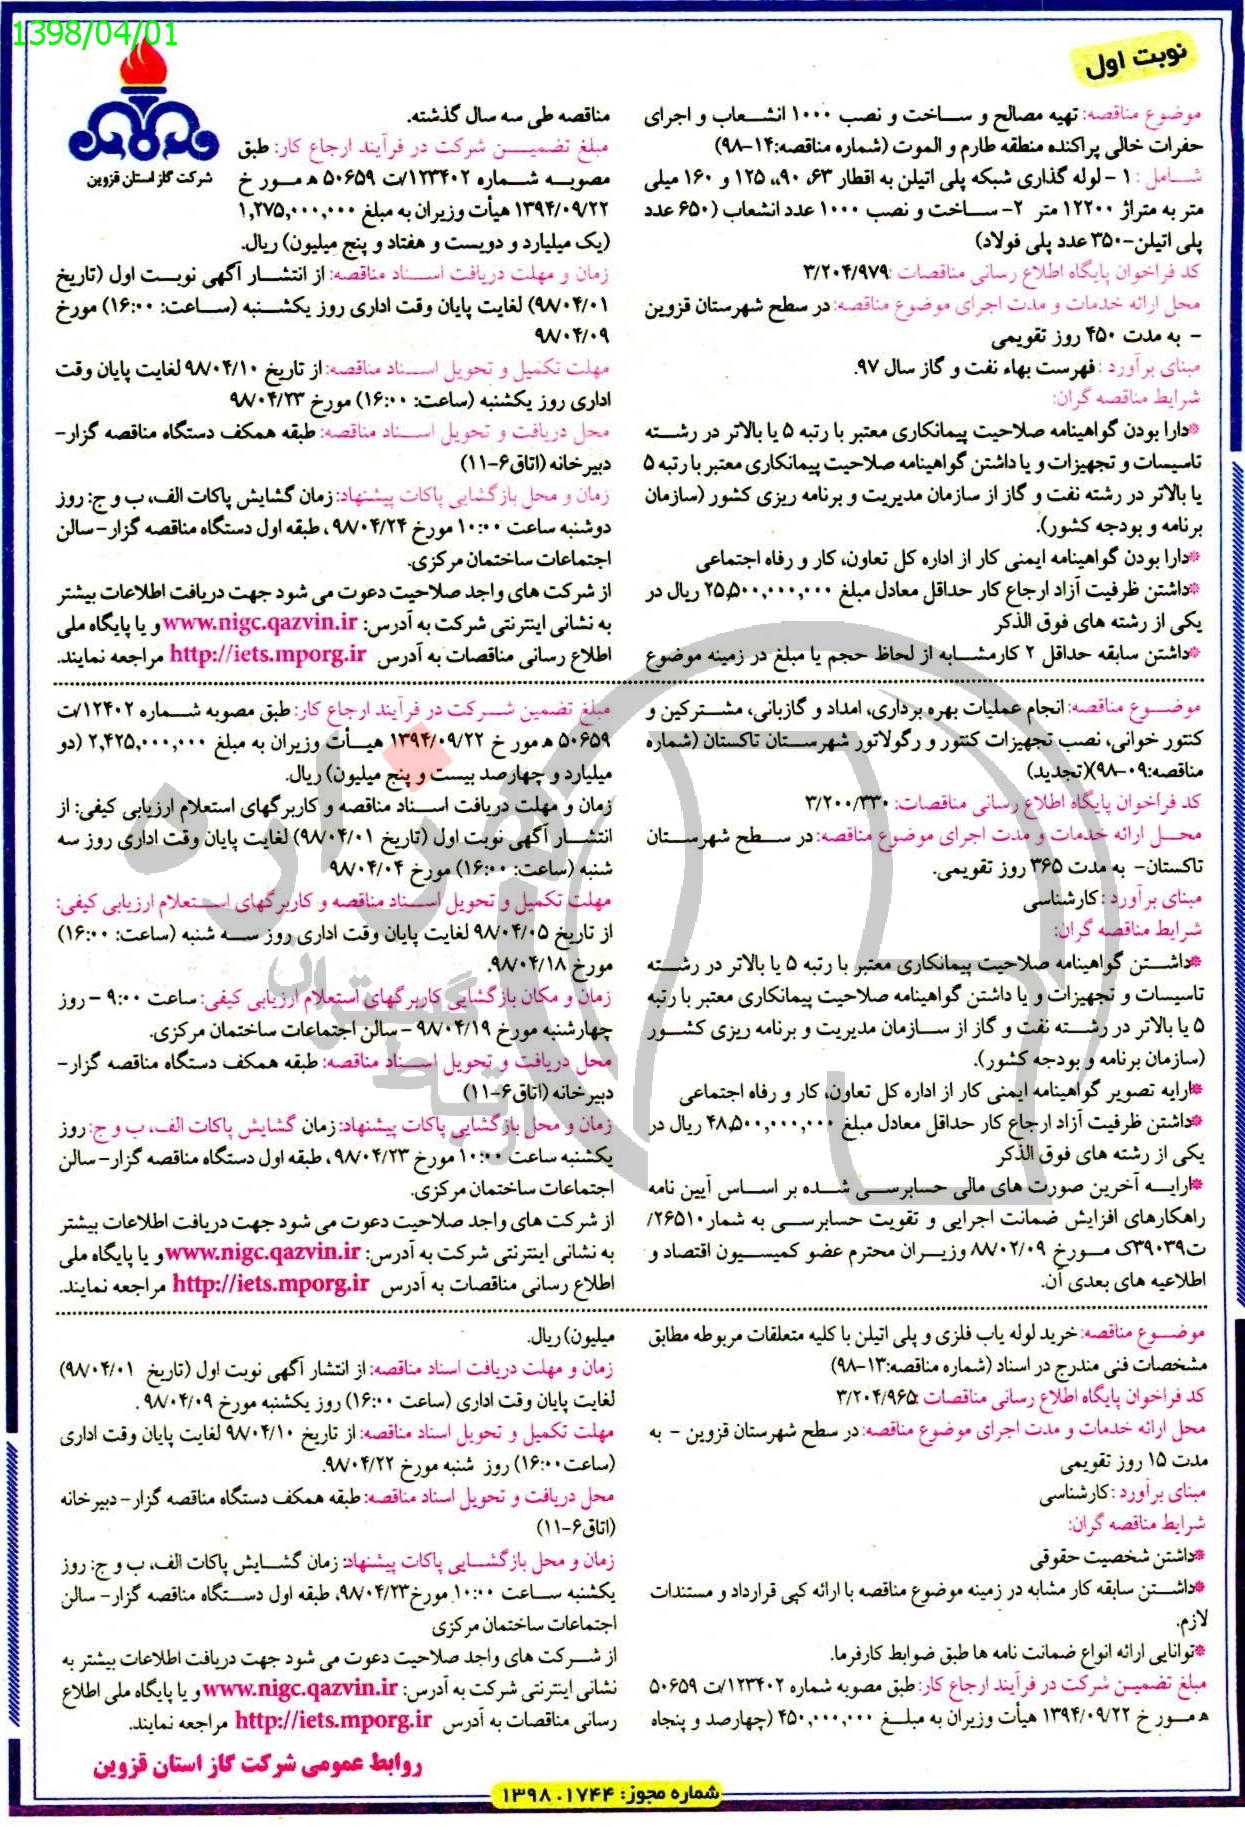 1398/04/01
نوبت اول
شرکت گاز استان قزوین
موضوع مناقصه: تهیه مصالح و ساخت و نصب ۱۰۰۰ انشعاب و اجرای
حفرات خالی پراکنده منطقه طارم و الموت (شماره مناقصه:۱۴-۹۸)
شامل : ۱ - لوله گذاری شبکه پلی اتیلن به اقطار ۶۳، ۹۰، ۱۲۵ و ۱۶۰ میلی
متر به متراژ ۱۲۲۰۰ متر ۲- ساخت و نصب ۱۰۰۰ عدد انشعاب (۶۵۰ عدد
پلی اتیلن-۳۵۰ عدد پلی فولاد)
کد فراخوان پایگاه اطلاع رسانی مناقصات :۳/۲۰۴/۹۷۹
محل ارائه خدمات و مدت اجرای موضوع مناقصه: در سطح شهرستان قزوین
- به مدت ۴۵۰ روز تقویمی
مبنای برآورد : فهرست بهاء نفت و گاز سال ۹۷.
شرایط مناقصه گران:
*دارا بودن گواهینامه صلاحیت پیمانکاری معتبر با رتبه ۵ یا بالاتر در رشته
تاسیسات و تجهیزات و یا داشتن گواهینامه صلاحیت پیمانکاری معتبر با رتبه ۵
یا بالاتر در رشته نفت و گاز از سازمان مدیریت و برنامه ریزی کشور (سازمان
برنامه و بودجه کشور).
*دارا بودن گواهینامه ایمنی کار از اداره کل تعاون، کار و رفاه اجتماعی
*داشتن ظرفیت آزاد ارجاع کار حداقل معادل مبلغ ۲۵,۵۰۰,۰۰۰,۰۰۰ ریال در
یکی از رشته های فوق الذکر
*داشتن سابقه حداقل ۲ کار مشابه از لحاظ حجم یا مبلغ در زمینه موضوع
مناقصه طی سه سال گذشته.
مبلغ تضمین شرکت در فرآیند ارجاع کار: طبق
مصوبه شماره ۱۲۳۴۰۲/ت ۵۰۶۵۹ ه مورخ
۱۳۹۴/۰۹/۲۲ هیأت وزیران به مبلغ ۱,۲۷۵,۰۰۰,۰۰۰
(یک میلیارد و دویست و هفتاد و پنج میلیون) ریال.
زمان و مهلت دریافت اسناد مناقصه: از انتشار آگهی نوبت اول (تاریخ
۹۸/۰۴/۰۱) لغایت پایان وقت اداری روز یکشنبه (ساعت: ۱۶:۰۰) مورخ
۹۸/۰۴/۰۹
مهلت تکمیل و تحویل اسناد مناقصه: از تاریخ ۹۸/۰۴/۱۰ لغایت پایان وقت
اداری روز یکشنبه (ساعت: ۱۶:۰۰) مورخ ۹۸/۰۴/۲۳
محل دریافت و تحویل اسناد مناقصه: طبقه همکف دستگاه مناقصه گزار-
دبیرخانه (اتاق۶-۱۱)
زمان و محل بازگشایی پاکات پیشنهاد: زمان گشایش پاکات الف، ب و ج: روز
دوشنبه ساعت ۱۰:۰۰ مورخ ۹۸/۰۴/۲۴ ، طبقه اول دستگاه مناقصه گزار-سالن
اجتماعات ساختمان مرکزی.
از شرکت های واجد صلاحیت دعوت می شود جهت دریافت اطلاعات بیشتر
به نشانی اینترنتی شرکت به آدرس: www.nigc.qazvin.ir و یا پایگاه ملی
اطلاع رسانی مناقصات به آدرس http://iets.mporg.ir مراجعه نمایند.
موضوع مناقصه: انجام عملیات بهره برداری، امداد و گازبانی، مشترکین و
کنتور خوانی، نصب تجهیزات کنتور و رگولاتور شهرستان تاکستان (شماره
مناقصه:۰۹-۹۸)(تجدید)
کد فراخوان پایگاه اطلاع رسانی مناقصات: ۳/۲۰۰/۳۳۰
محل ارائه خدمات و مدت اجرای موضوع مناقصه: در سطح شهرستان
تاکستان- به مدت ۳۶۵ روز تقویمی.
مبنای برآورد : کارشناسی
شرایط مناقصه گران:
*داشتن گواهینامه صلاحیت پیمانکاری معتبر با رتبه ۵ یا بالاتر در رشته
تاسیسات و تجهیزات و یا داشتن گواهینامه صلاحیت پیمانکاری معتبر با رتبه
۵ یا بالاتر در رشته نفت و گاز از سازمان مدیریت و برنامه ریزی کشور
(سازمان برنامه و بودجه کشور).
*ارایه تصویر گواهینامه ایمنی کار از اداره کل تعاون، کار و رفاه اجتماعی
*داشتن ظرفیت آزاد ارجاع کار حداقل معادل مبلغ ۴۸,۵۰۰,۰۰۰,۰۰۰ ریال در
یکی از رشته های فوق الذکر
*ارایه آخرین صورت های مالی حسابرسی شده بر اساس آیین نامه
راهکارهای افزایش ضمانت اجرایی و تقویت حسابرسی به شمار۲۶۵۱۰/
ت۳۹۰۳۹ک مورخ ۸۸/۰۲/۰۹ وزیران محترم عضو کمیسیون اقتصاد و
اطلاعیه های بعدی آن.
مبلغ تضمین شرکت در فرآیند ارجاع کار: طبق مصوبه شماره ۱۲۴۰۲/ت
۵۰۶۵۹ ه مورخ ۱۳۹۴/۰۹/۲۲ هیأت وزیران به مبلغ ۲,۴۲۵,۰۰۰,۰۰۰ (دو
میلیارد و چهارصد بیست و پنج میلیون) ریال.
زمان و مهلت دریافت اسناد مناقصه و کاربرگهای استعلام ارزیابی کیفی: از
انتشار آگهی نوبت اول (تاریخ ۹۸/۰۴/۰۱) لغایت پایان وقت اداری روز سه
شنبه (ساعت: ۱۶:۰۰) مورخ ۹۸/۰۴/۰۴
مهلت تکمیل و تحویل اسناد مناقصه و کاربرگهای استعلام ارزیابی کیفی:
از تاریخ ۹۸/۰۴/۰۵ لغایت پایان وقت اداری روز سه شنبه (ساعت: ۱۶:۰۰)
مورخ ۹۸/۰۴/۱۸.
زمان و مکان بازگشایی کاربرگهای استعلام ارزیابی کیفی: ساعت ۹:۰۰ - روز
چهارشنبه مورخ ۹۸/۰۴/۱۹ - سالن اجتماعات ساختمان مرکزی.
محل دریافت و تحویل اسناد مناقصه: طبقه همکف دستگاه مناقصه گزار-
دبیرخانه (اتاق۶-۱۱)
زمان و محل بازگشایی پاکات پیشنهاد: زمان گشایش پاکات الف، ب و ج: روز
یکشنبه ساعت ۱۰:۰۰ مورخ ۹۸/۰۴/۲۳ ، طبقه اول دستگاه مناقصه گزار-سالن
اجتماعات ساختمان مرکزی.
از شرکت های واجد صلاحیت دعوت می شود جهت دریافت اطلاعات بیشتر
به نشانی اینترنتی شرکت به آدرس: www.nigc.qazvin.ir و یا پایگاه ملی
اطلاع رسانی مناقصات به آدرس http://iets.mporg.ir مراجعه نمایند.
موضوع مناقصه: خرید لوله یاب فلزی و پلی اتیلن با کلیه متعلقات مربوطه مطابق
مشخصات فنی مندرج در اسناد (شماره مناقصه:۱۳-۹۸)
کد فراخوان پایگاه اطلاع رسانی مناقصات :۳/۲۰۴/۹۶۵
محل ارائه خدمات و مدت اجرای موضوع مناقصه: در سطح شهرستان قزوین - به
مدت ۱۵ روز تقویمی
مبنای برآورد : کارشناسی
شرایط مناقصه گران:
*داشتن شخصیت حقوقی
*داشتن سابقه کار مشابه در زمینه موضوع مناقصه با ارائه کپی قرارداد و مستندات
لازم.
*توانایی ارائه انواع ضمانت نامه ها طبق ضوابط کارفرما.
مبلغ تضمین شرکت در فرآیند ارجاع کار: طبق مصوبه شماره ۱۲۳۴۰۲/ت ۵۰۶۵۹
ه مورخ ۱۳۹۴/۰۹/۲۲ هیأت وزیران به مبلغ ۴۵۰,۰۰۰,۰۰۰ (چهارصد و پنجاه
میلیون) ریال.
زمان و مهلت دریافت اسناد مناقصه: از انتشار آگهی نوبت اول (تاریخ ۹۸/۰۴/۰۱)
لغایت پایان وقت اداری (ساعت ۱۶:۰۰) روز یکشنبه مورخ ۹۸/۰۴/۰۹ .
مهلت تکمیل و تحویل اسناد مناقصه: از تاریخ ۹۸/۰۴/۱۰ لغایت پایان وقت اداری
(ساعت۱۶:۰۰) روز شنبه مورخ ۹۸/۰۴/۲۲.
محل دریافت و تحویل اسناد مناقصه: طبقه همکف دستگاه مناقصه گزار-دبیرخانه
(اتاق۶-۱۱)
زمان و محل بازگشایی پاکات پیشنهاد: زمان گشایش پاکات الف، ب و ج: روز
یکشنبه ساعت ۱۰:۰۰ مورخ ۹۸/۰۴/۲۳، طبقه اول دستگاه مناقصه گزار- سالن
اجتماعات ساختمان مرکزی
از شرکت های واجد صلاحیت دعوت می شود جهت دریافت اطلاعات بیشتر به
نشانی اینترنتی شرکت به آدرس: www.nigc.qazvin.ir و یا پایگاه ملی اطلاع
رسانی مناقصات به آدرس http://iets.mporg.ir مراجعه نمایند.
روابط عمومی شرکت گاز استان قزوین
شماره مجوز: ۱۷۴۴. ۱۳۹۸